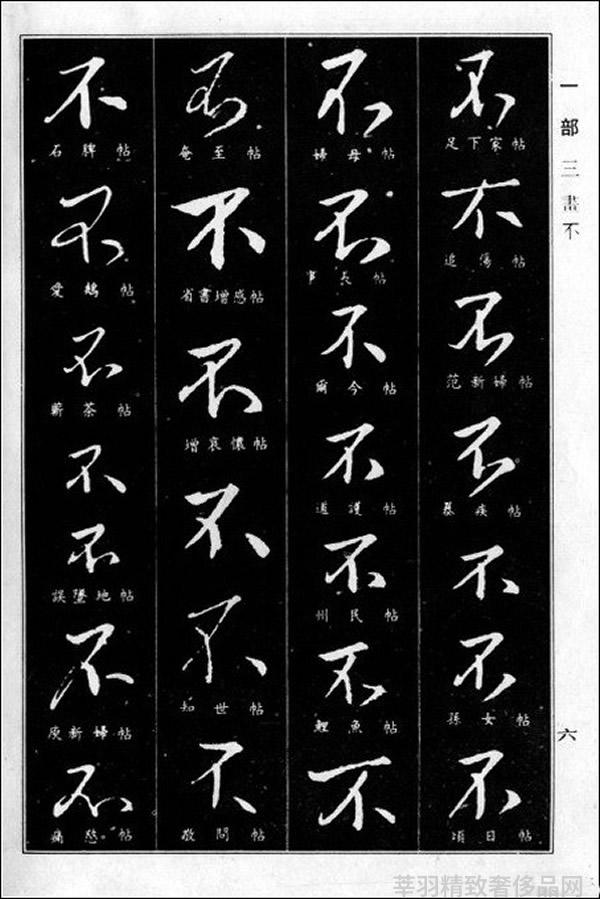 一部 三畫 不
六
不
足下家帖
不
追傷帖
不
范新婦帖
不
暮疾帖
不
不
孫女帖
不
頃日帖
不
婦母帖
不
事長帖
不
爾今帖
不
道護帖
不
州民帖
不
鯉魚帖
不
不
奄至帖
不
省書增感帖
不
增哀懷帖
不
不
知世帖
不
敬問帖
不
石脾帖
不
愛鵝帖
不
蘄茶帖
不
不
誤墮地帖
不
庾新婦帖
不
痛愍帖
莘羽精致奢侈品网